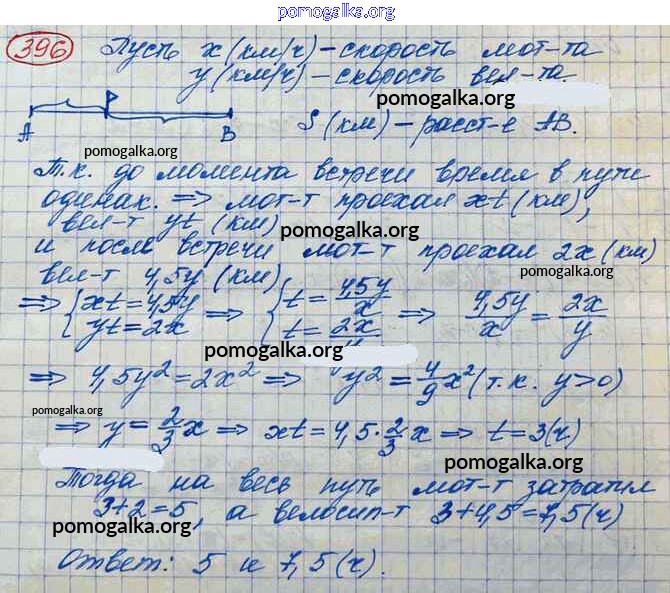 pomogalka.org
396 Пусть x (км/ч) – скорость мот-та
y (км/ч) – скорость вел-та.
pomogalka.org
A P B S (км) – расст-е AB.
pomogalka.org
Т.к. до момента встречи время в пути
одинак. ⇒ мот-т проехал xt (км),
вел-т yt (км)
pomogalka.org
и после встречи мот-т проехал 2x (км)
pomogalka.org
вел-т 4,5y (км)
⇒ { xt = 4,5y yt = 2x ⇒ { t = 4,5y/x t = 2x/ ⇒ 4,5y/x = 2x/y
pomogalka.org
⇒ 4,5y² = 2x² ⇒ y² = 4/9 x² (т.к. y>0)
pomogalka.org
⇒ y = 2/3 x ⇒ xt = 4,5 · 2/3 x ⇒ t = 3 (ч)
pomogalka.org
Тогда на весь путь мот-т затратил
3+2=5, а велосип-т 3+4,5=7,5 (ч)
pomogalka.org
Ответ: 5 и 7,5 (ч).
pomogalka.org